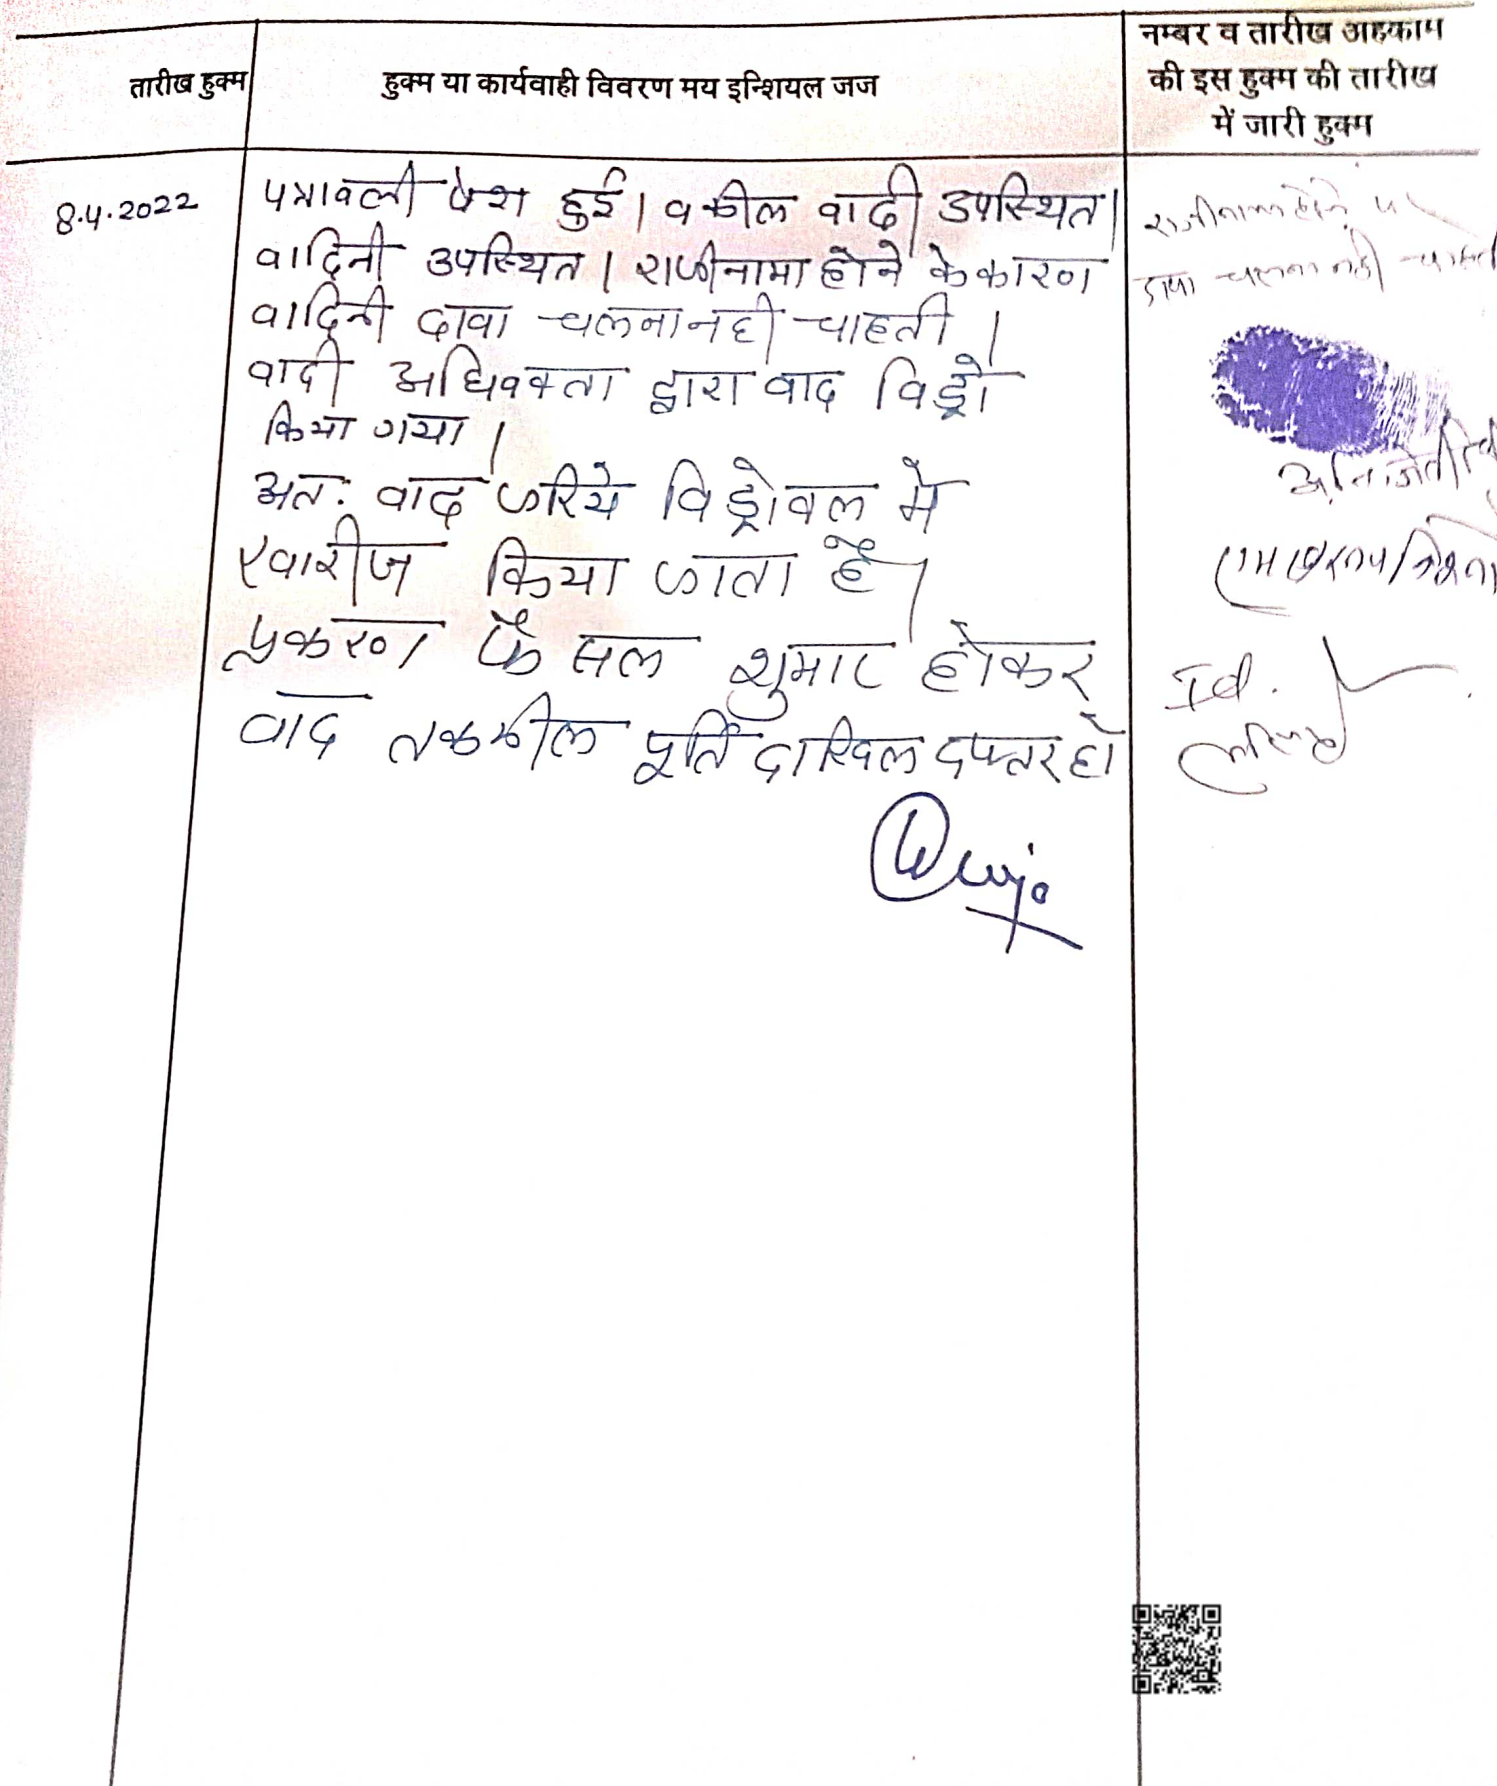 तारीख हुक्म
हुक्म या कार्यवाही विवरण मय इन्शियल जज
नम्बर व तारीख अहकाम
की इस हुक्म की तारीख
में जारी हुक्म
8.4.2022
पत्रावली पेश हुई। वकील वादी उपस्थित।
वादिनी उपस्थित। राजीनामा होने के कारण
वादिनी दावा चलना नही चाहती।
वादी अधिवक्ता द्वारा वाद विड्रो
किया गया।
अतः वाद जरिये विड्रोवल मे
खारीज किया जाता है।
प्रकरण फैसल शुमार होकर
वाद तकमील पूर्ति दाखिल दफ्तर हो
राजीनामा होने
दावा चलना नही चाहती